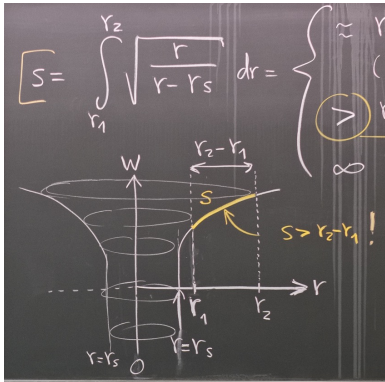 s = ∫_{r₁}^{r₂} √(r/(r-rₛ)) dr = { ≈ r
(
> r
∞
W
r₂-r₁
s
s > r₂-r₁ !
r
r₁
r₂
r=rₛ
r=rₛ
0